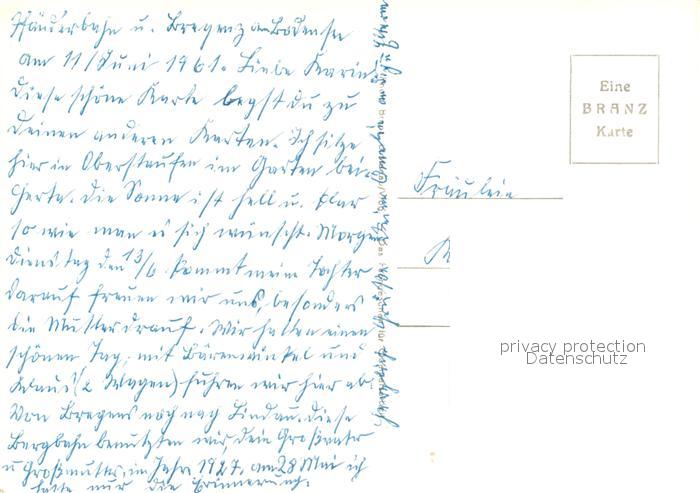 Pfänderbahn u. Bregenz a. Bodensee
am 11/Juni 1961. Liebe Karin.
Diese schöne Karte legst du zu
Deinen anderen Karten. Ich sitze
hier in Oberstaufen im Garten bei
Herta. Die Sonne ist hell u. klar
so wie man es sich wünscht. Morgen
Dienstag den 13/6 kommt meine Tochter
darauf freuen wir uns, besonders
die Mutter drauf. Wir hatten einen
schönen Tag, mit Bärenwinkel und
Klaus (2 Wagen) fuhren wir hier ab.
Von Bregenz noch nach Lindau. Diese
Bergbahn benutzten wir, Dein Großvater
u Großmutter, im Jahre 1927. am 28 Mai ich
hatte nur die Erinnerung.
Eine
BRANZ
Karte
Fräulein
K
privacy protection
Datenschutz